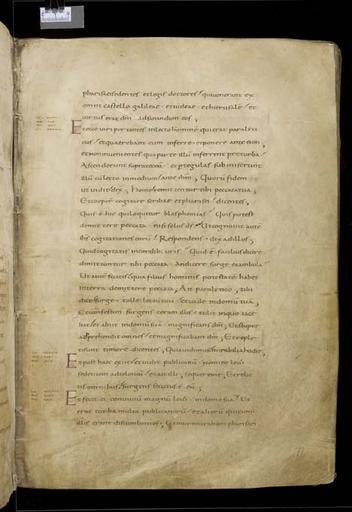 pharisei sedentes et legis doctores qui venerant ex
omni castello galileae et iudeae et hierusale et
virtus erat dni ad sanandum eos
Et ecce viri portantes in lecto homine qui erat paraly
et quaerebant eum inferre et ponere ante eum
et non invenientes qua parte illu inferrent prae turba
Ascenderunt supra tectu et per tegulas submiserunt
illu cu lecto in medium ante ihm Quoru fidem
ut vidit dixit Homo remittuntur tibi peccata tua
Et coeperunt cogitare scribae et pharisei dicentes
Quis est hic qui loquitur blasphemias Quis potest
dimittere peccata nisi solus ds Ut cognovit aute
ihs cogitationes eoru Respondens dixit ad illos
Quid cogitatis in cordib vris Quid e facilius dicere
dimittuntur tibi peccata An dicere surge et ambula
Ut aute sciatis quia filius hominis potestate habet
in terra dimittere peccata Ait paralytico tibi
dico surge tolle lectu tuu et vade in domu tua
Et confestim surgens coram illis tulit in quo iace
bat et abiit in domu sua magnificans dm Et stupor
adprehendit omnes et magnificabant dm Et reple
ti sunt timore dicentes Quia vidimus mirabilia hodie
Et post haec exiit et vidit publicanu nomine levi
sedentem ad teloniu et ait illi sequere me Et relic
tis omnibus surgens secutus e eu
Et fecit ei conviviu magnu levi in domo sua Et
erat turba multa publicanoru et alioru qui cu
illis erant discumbentes Et murmurabant pharisei